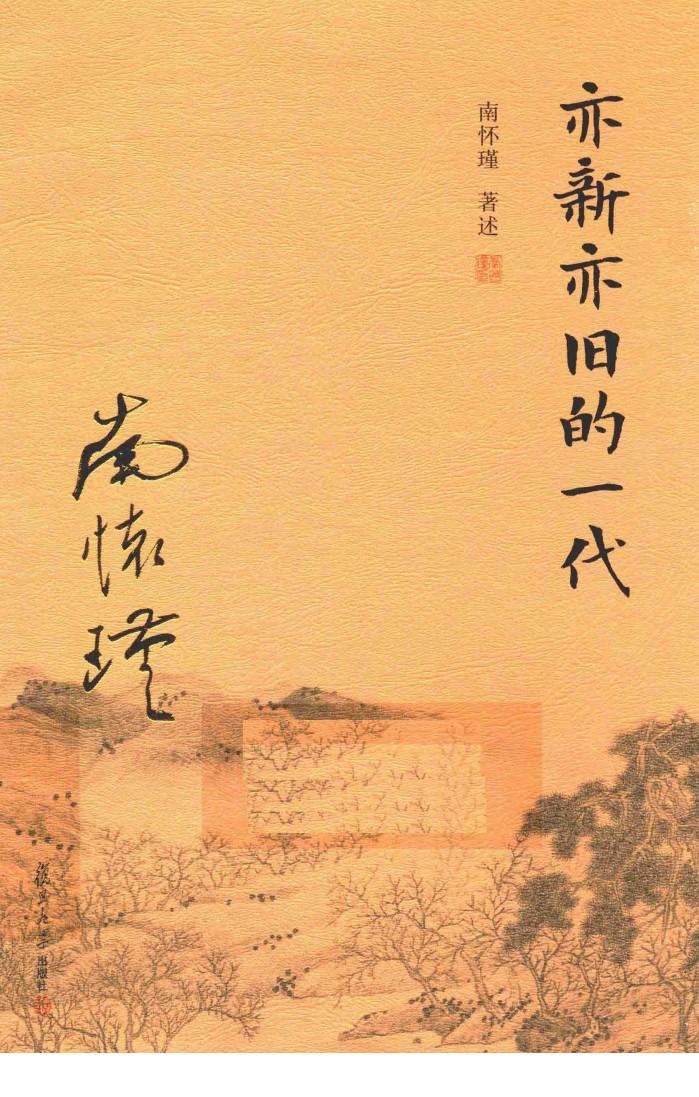 亦新亦旧的一代
南怀瑾 著述
南懷瑾
復旦大學 出版社